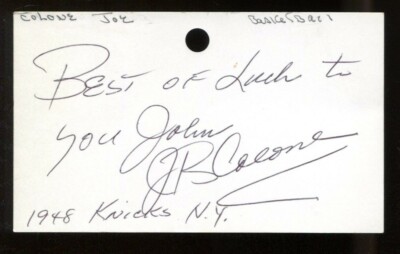 COLONE JOE BasketBall
BEST OF Luck to
you John
JB Colone
1948 Knicks N.Y.